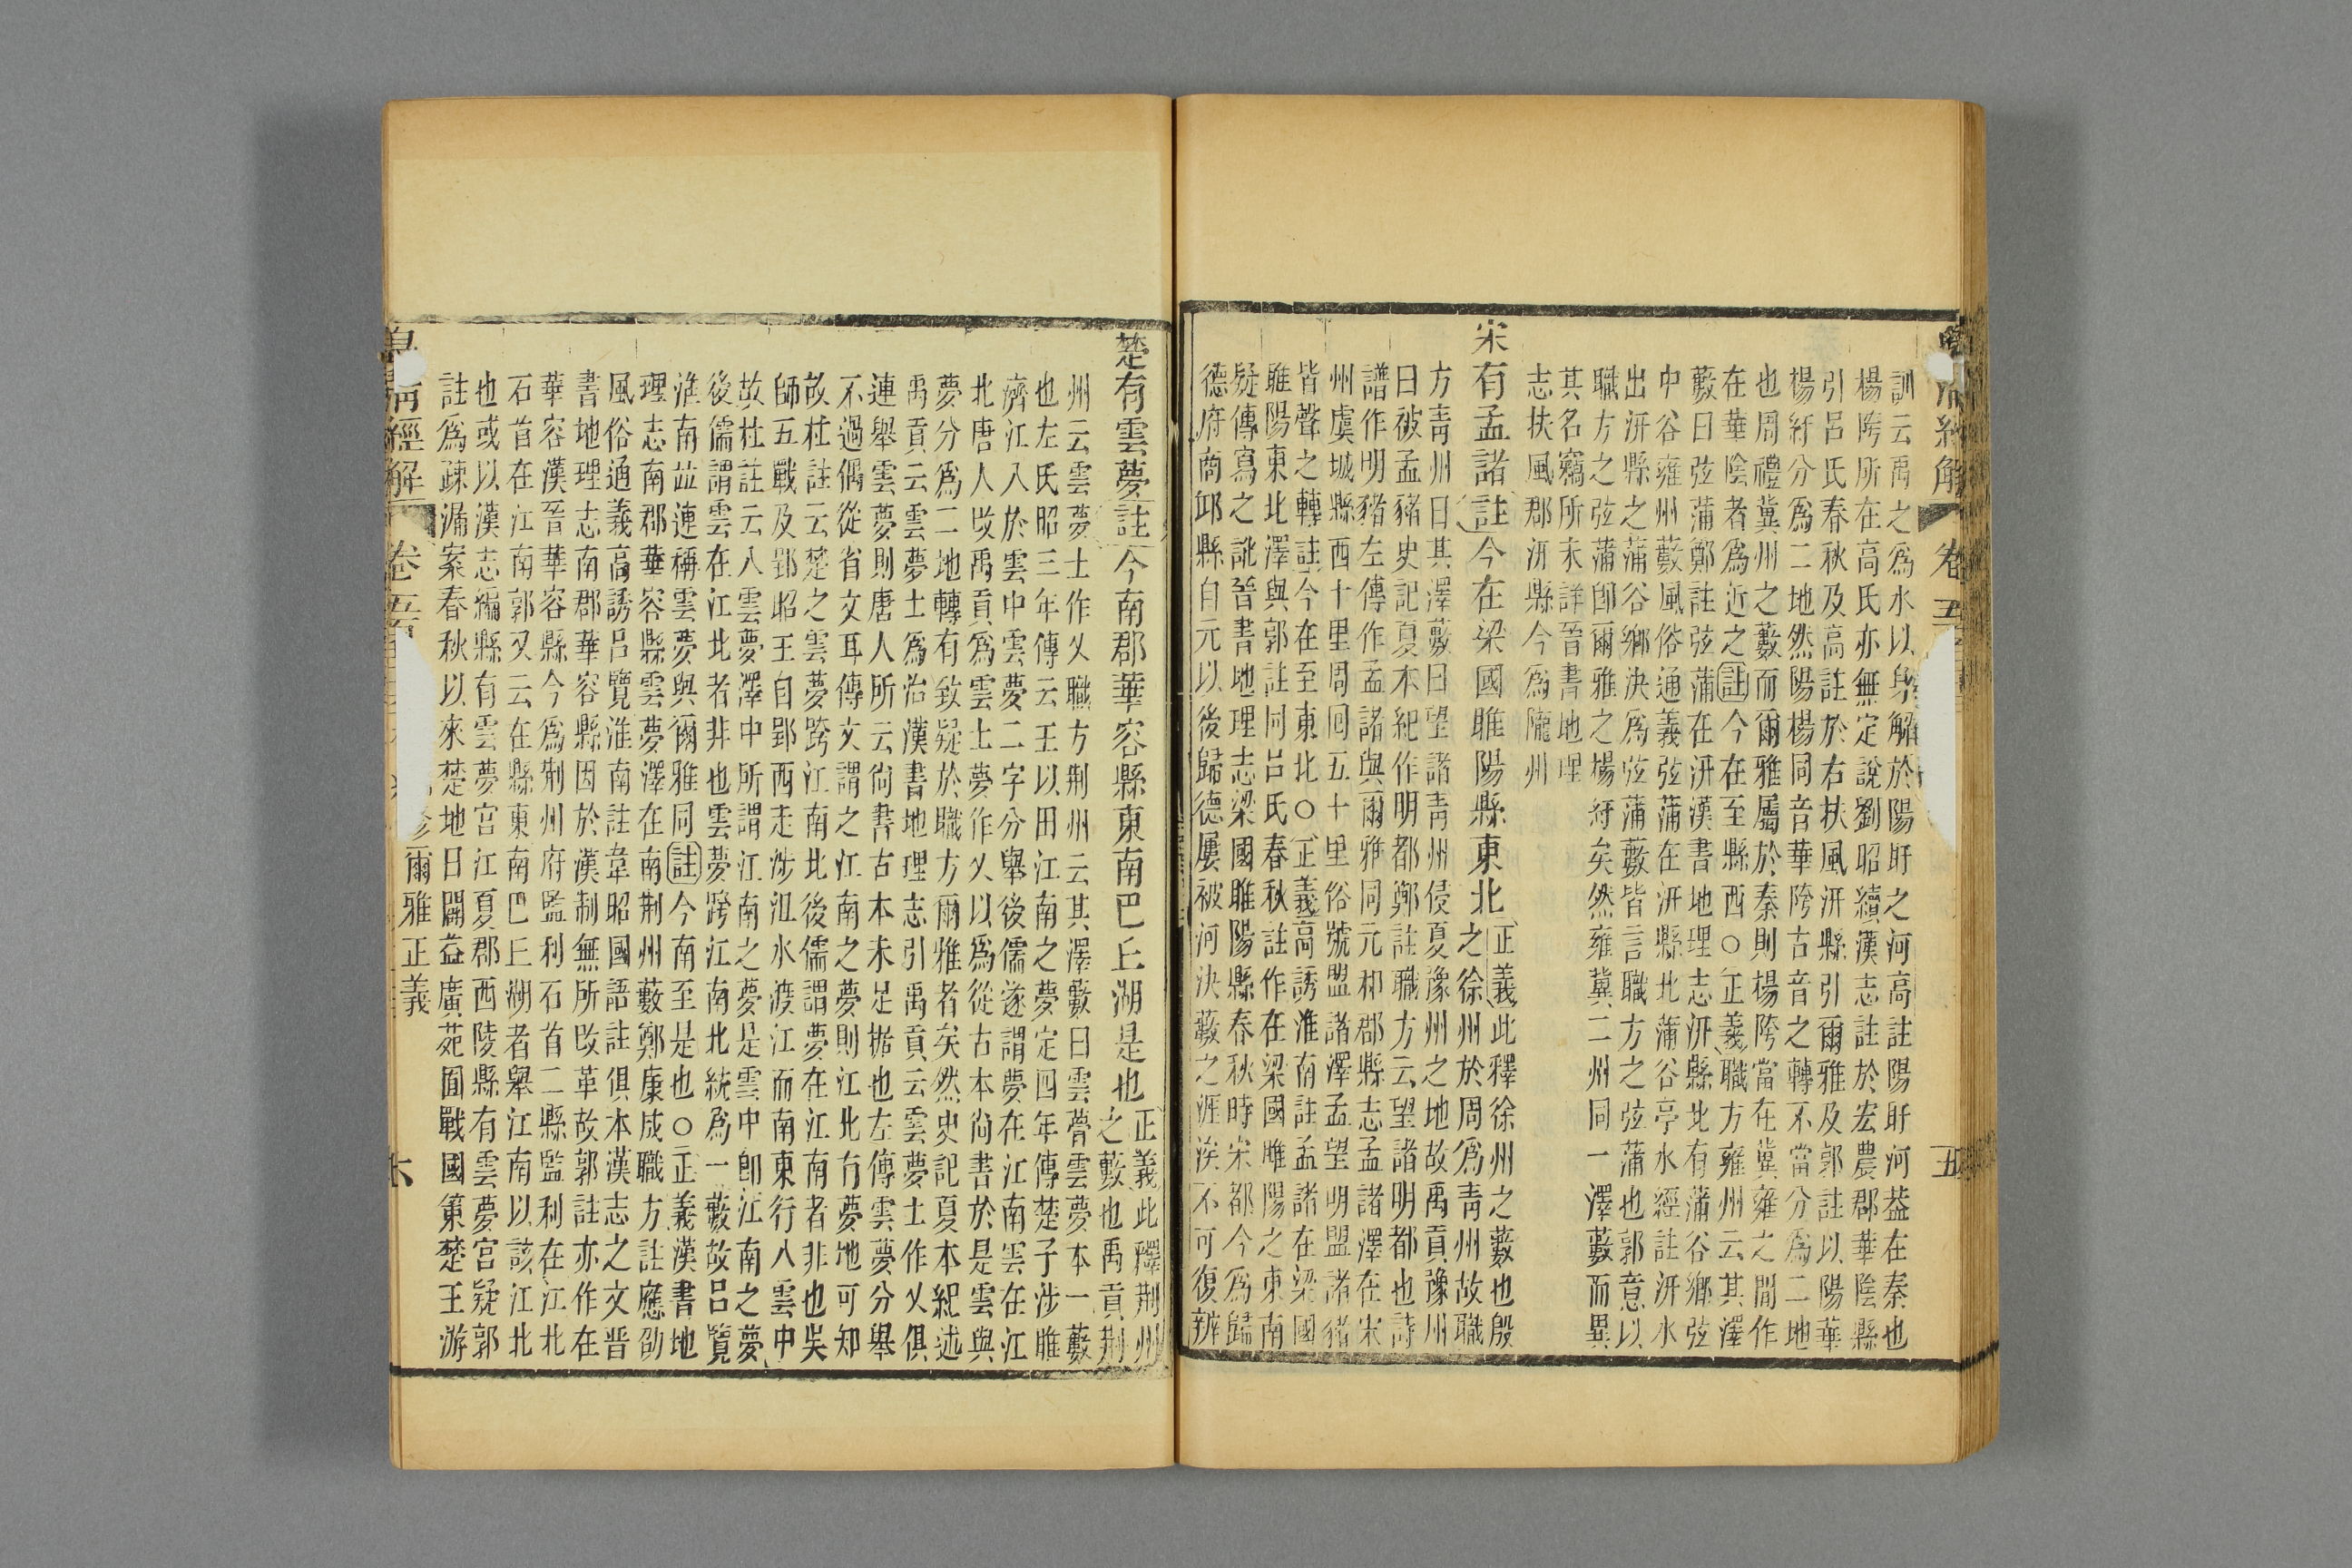 訓云禹之爲水以身解於陽盱之河高註陽盱河葢在秦也
楊陓所在高氏亦無定說劉昭續漢志註於宏農郡華陰縣
引呂氏春秋及高註於右扶風汧縣引爾雅及郭註以陽華
楊紆分爲二地然陽楊同音華陓古音之轉不當分爲二地
也周禮冀州之藪而爾雅屬於秦則楊陓當在冀雍之間作
在華陰者爲近之註今在至縣西○正義職方雍州云其澤
藪曰弦蒲鄭註弦蒲在汧漢書地理志汧縣北有蒲谷鄉弦
中谷雍州藪風俗通義弦蒲在汧縣北蒲谷亭水經註汧水
出汧縣之蒲谷鄉決爲弦蒲藪皆言職方之弦蒲也郭意以
職方之弦蒲卽爾雅之楊紆矣然雍冀二州同一澤藪而異
其名竊所未詳晉書地理
志扶風郡汧縣今爲隴州
宋有孟諸註今在梁國睢陽縣東北正義此釋徐州之藪也殷
之徐州於周爲靑州故職
方靑州曰其澤藪曰望諸靑州侵夏豫州之地故禹貢豫州
曰被孟豬史記夏本紀作明都鄭註職方云望諸明都也詩
譜作明豬左傳作孟諸與爾雅同元和郡縣志孟諸澤在宋
州虞城縣西十里周囘五十里俗號盟諸澤孟望明盟諸豬
皆聲之轉註今在至東北○正義高誘淮南註孟諸在梁國
睢陽東北澤與郭註同呂氏春秋註作在梁國睢陽之東南
疑傳寫之訛晉書地理志梁國睢陽縣春秋時宋都今爲歸
德府商邱縣自元以後歸德屢被河決藪之涯涘不可復辨
卷五 五
楚有雲夢註今南郡華容縣東南巴丘湖是也正義此釋荆州
之藪也禹貢荆
州云雲夢土作乂職方荆州云其澤藪曰雲瞢雲夢本一藪
也左氏昭三年傳云王以田江南之夢定四年傳楚子涉睢
濟江入於雲中雲夢二字分舉後儒遂謂夢在江南雲在江
北唐人改禹貢爲雲土夢作乂以爲從古本尙書於是雲與
夢分爲二地轉有致疑於職方爾雅者矣然史記夏本紀述
禹貢云雲夢土爲治漢書地理志引禹貢云雲夢土作乂俱
連舉雲夢則唐人所云尙書古本未足據也左傳雲夢分舉
不過偶從省文耳傳文謂之江南之夢則江北有夢地可知
故杜註云楚之雲夢跨江南北後儒謂夢在江南者非也吳
師五戰及郢昭王自郢西走涉沮水渡江而南東行入雲中
故杜註云入雲夢澤中所謂江南之夢是雲中卽江南之夢
後儒謂雲在江北者非也雲夢跨江南北統爲一藪故呂覽
淮南並連稱雲夢與爾雅同註今南至是也○正義漢書地
理志南郡華容縣雲夢澤在南荆州藪鄭康成職方註應劭
風俗通義高誘呂覽淮南註韋昭國語註俱本漢志之文晋
書地理志南郡華容縣因於漢制無所改革故郭註亦作在
華容漢晉華容縣今爲荆州府監利石首二縣監利在江北
石首在江南郭又云在縣東南巴丘湖者舉江南以該江北
也或以漢志編縣有雲夢宮江夏郡西陵縣有雲夢宮疑郭
註爲疎漏案春秋以來楚地日闢益廣苑囿戰國策楚王游
清經解 卷五 爾雅正義 六